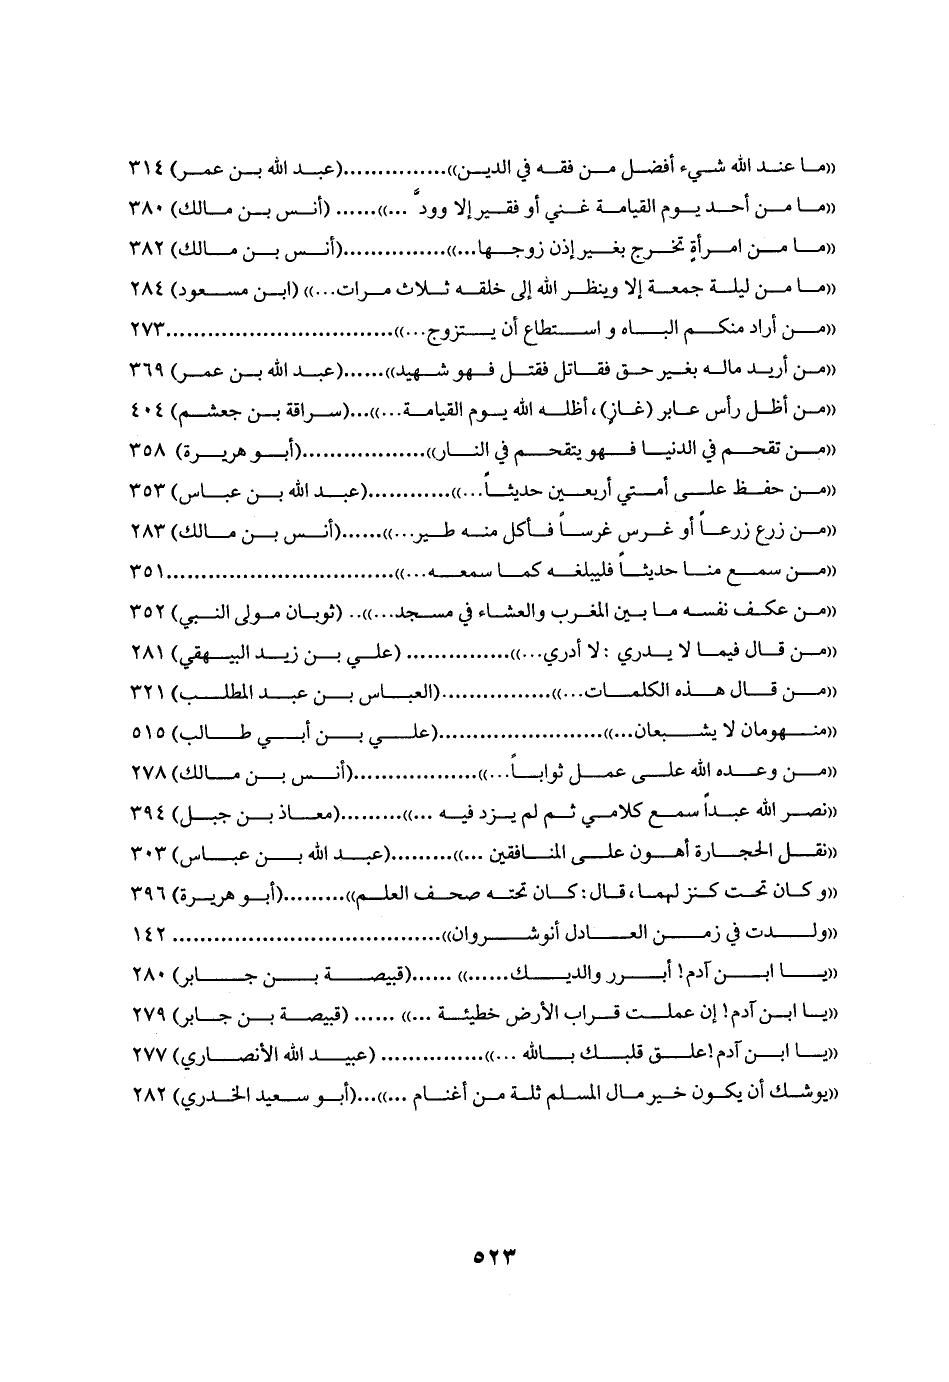 ((ما عند الله شيء أفضل من فقه في الدين))................(عبد الله بن عمر) ٣١٤
((ما من أحد يوم القيامة غني أو فقير إلا ودَّ ...))...... (أنس بن مالك) ٣٨٠
((ما من امرأةٍ تخرج بغير إذن زوجها...))................(أنس بن مالك) ٣٨٢
((ما من ليلة جمعة إلا وينظر الله إلى خلقه ثلاث مرات...)) (ابن مسعود) ٢٨٤
((من أراد منكم الباه و استطاع أن يتزوج...))...................................٢٧٣
((من أريد ماله بغير حق فقاتل فقتل فهو شهيد))......(عبد الله بن عمر) ٣٦٩
((من أظل رأس عابر (غازٍ)، أظله الله يوم القيامة...))...(سراقة بن جعشم) ٤٠٤
((من تقحم في الدنيا فهو يتقحم في النار))...................(أبو هريرة) ٣٥٨
((من حفظ على أمتي أربعين حديثاً...))............(عبد الله بن عباس) ٣٥٣
((من زرع زرعاً أو غرس غرساً فأكل منه طير...))......(أنس بن مالك) ٢٨٣
((من سمع منا حديثاً فليبلغه كما سمعه...))...................................٣٥١
((من عكف نفسه ما بين المغرب والعشاء في مسجد...)).. (ثوبان مولى النبي) ٣٥٢
((من قال فيما لا يدري : لا أدري...))................ (علي بن زيد البيهقي) ٢٨١
((من قال هذه الكلمات...)).................(العباس بن عبد المطلب) ٣٢١
((منهومان لا يشبعان...)).........................(علي بن أبي طالب) ٥١٥
((من وعده الله على عمل ثواباً...))...................(أنس بن مالك) ٢٧٨
((نضر الله عبداً سمع كلامي ثم لم يزد فيه ...))..........(معاذ بن جبل) ٣٩٤
((نقل الحجارة أهون على المنافقين ...))..........(عبد الله بن عباس) ٣٠٣
((و كان تحت كنز لهما، قال: كان تحته صحف العلم))..........(أبو هريرة) ٣٩٦
((ولدت في زمن العادل أنوشروان))......................................... ١٤٢
((يا ابن آدم! أبرر والديك......)) ......(قبيصة بن جابر) ٢٨٠
((يا ابن آدم! إن عملت قراب الأرض خطيئة ...)) ...... (قبيصة بن جابر) ٢٧٩
((يا ابن آدم! علق قلبك بالله ...))................ (عبيد الله الأنصاري) ٢٧٧
((يوشك أن يكون خير مال المسلم ثلة من أغنام ...))...(أبو سعيد الخدري) ٢٨٢
٥٢٣